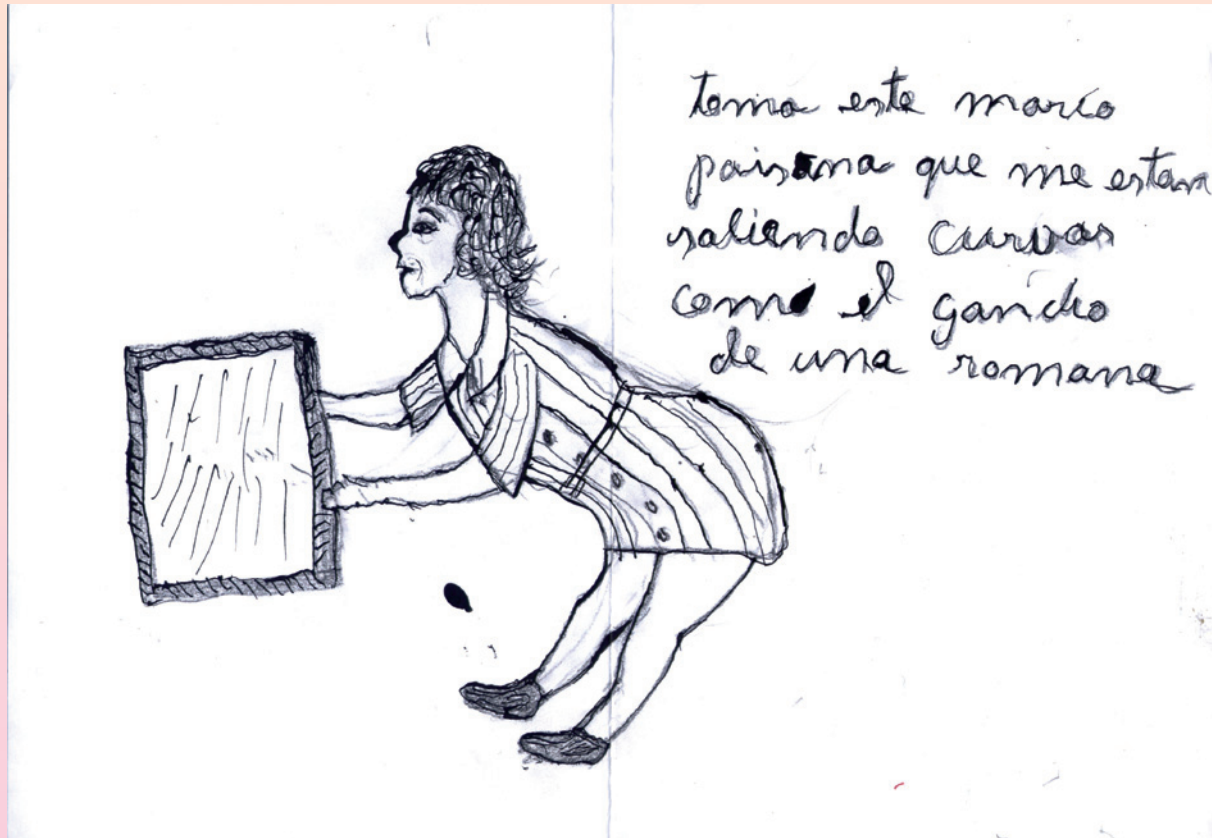 toma este marco
paisana que me estan
saliendo curvas
como el gancho
de una romana